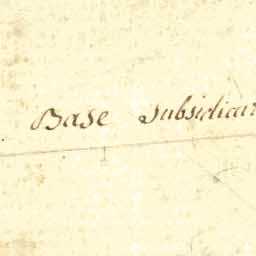 Base subsidiar